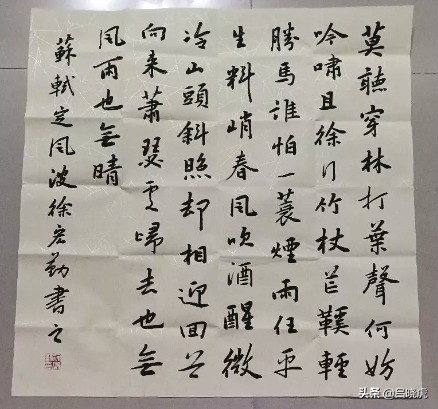 莫聽穿林打葉聲何妨
吟嘯且徐行竹杖芒鞵輕
勝馬誰怕一蓑煙雨任平
生料峭春風吹酒醒微
冷山頭斜照却相迎回首
向來蕭瑟處歸去也無
風雨也無晴
蘇軾定風波徐宏勤書之
头条 @吕晓虎